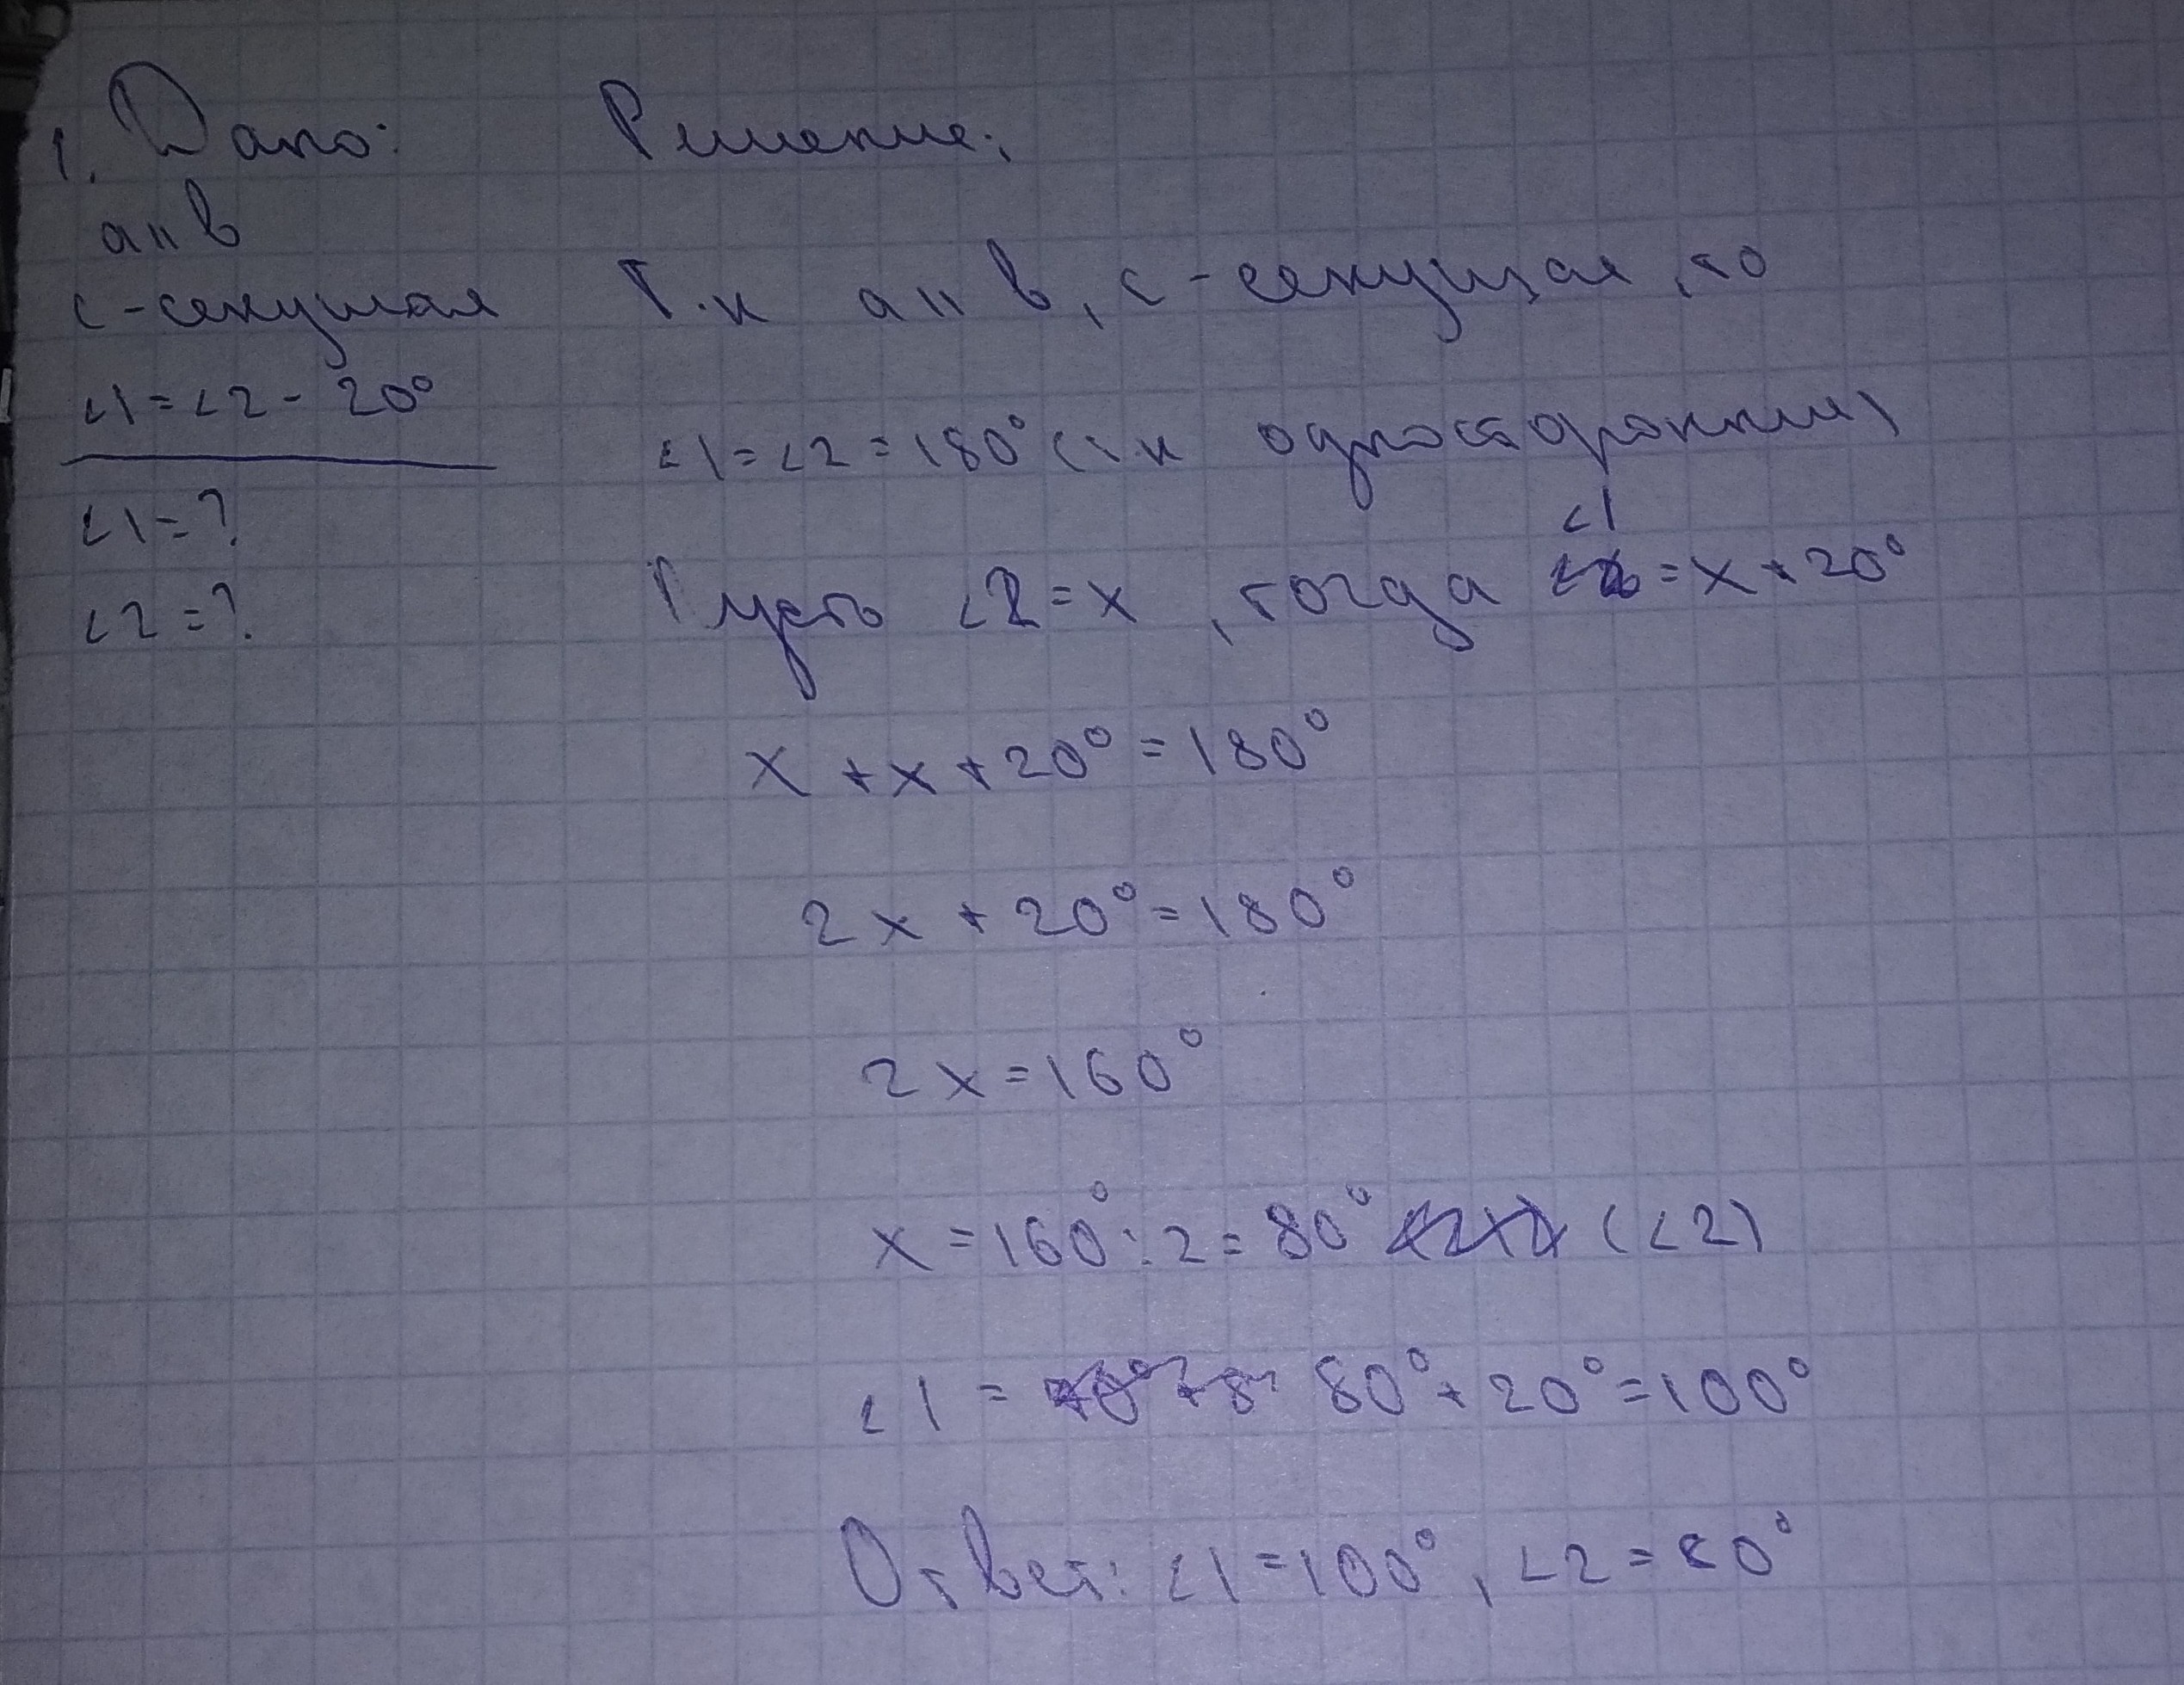 1. Дано:
а || в
с - секущая
∠1 = ∠2 - 20°
∠1 = ?
∠2 = ?
Решение:
Т.к а || в, с - секущая, то
∠1 = ∠2 = 180° (т.к односторонние)
∠1
Пусть ∠2 = х, тогда = х + 20°
х + х + 20° = 180°
2х + 20° = 180°
2х = 160°
х = 160° : 2 = 80° (∠2)
∠1 = 80° + 20° = 100°
Ответ: ∠1 = 100°, ∠2 = 80°